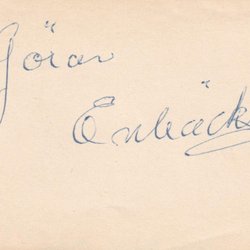 Göran
Enbäck